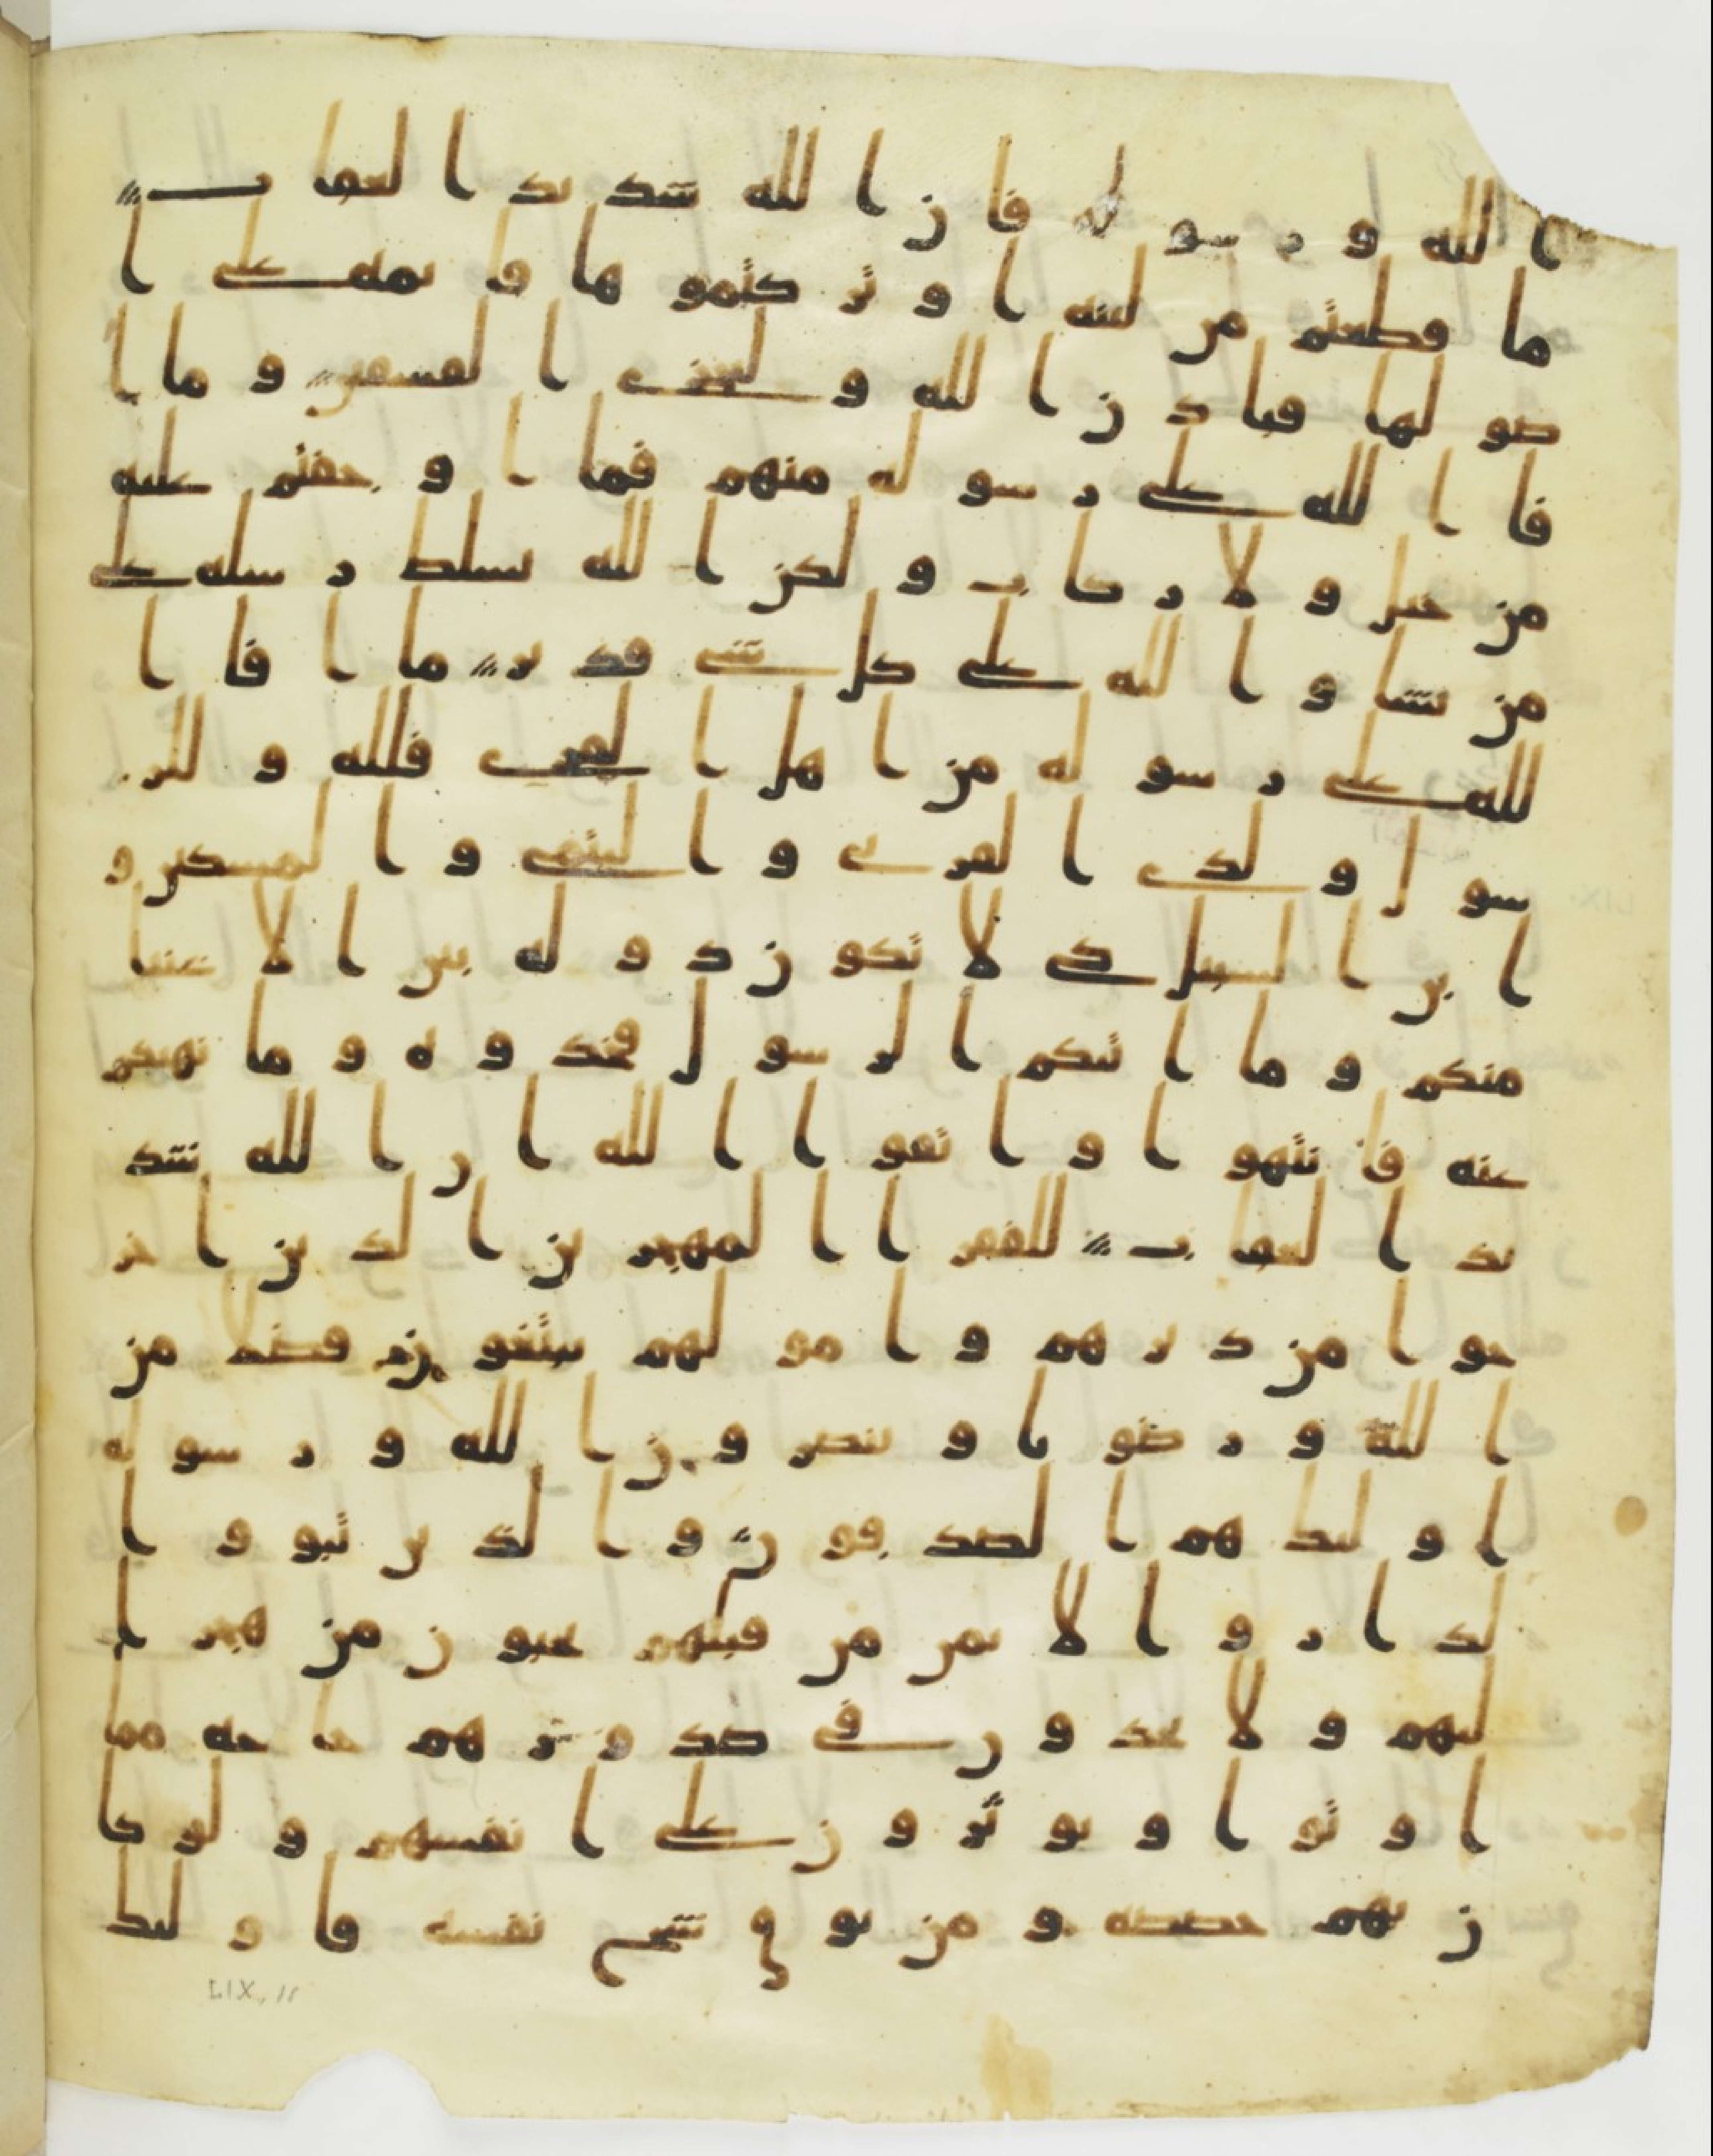 ا لله و رسوله فان الله شديد العقاب
ما قطعتم من لينه او تركتموها قايمه على ا
صولها فباذن الله وليخزي الفسقين وما ا
فا الله على رسوله منهم فما اوجفتم عليه
من خيل ولا ركاب ولكن الله يسلط رسله على
من يشا والله على كل شي قدير ما افا ا
لله على رسوله من اهل القرى فلله وللر
سول ولذي القربى واليتمى والمسكين و
ابن السبيل كي لا يكون دوله بين الاغنيا
منكم وما اتيكم الرسول فخذوه وما نهيكم
عنه فانتهوا واتقوا الله ان الله شد
يد العقاب للفقرا المهجرين الذين اخر
جوا من ديرهم وامولهم يبتغون فضلا من
الله ورضونا وينصرون الله ورسوله
اوليك هم الصدقون والذين تبوو ا
لدار والايمن من قبلهم يحبون من هجر ا
ليهم ولا يجدون في صدورهم حاجه مما
اوتوا ويوثرون على انفسهم ولو كا
ن بهم خصصه ومن يوق شح نفسه فاوليك
LIX, 11